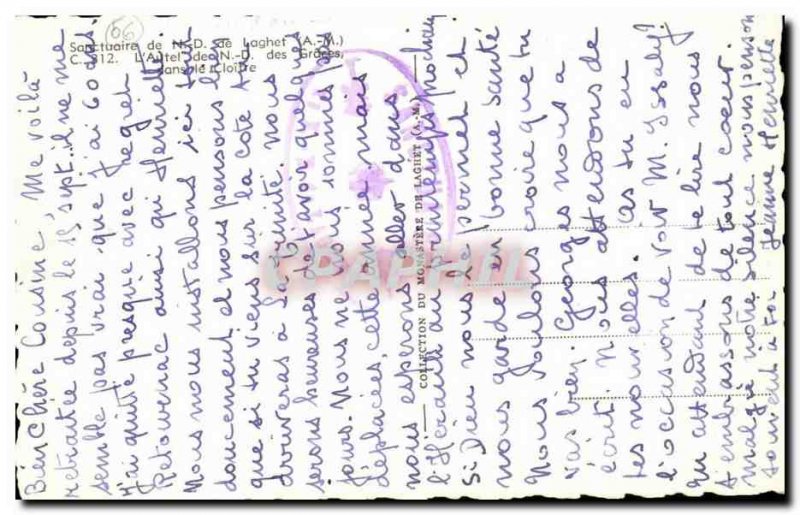 06
Sanctuaire de N.-D. de Laghet (A.-M.)
C. 812. L'Autel de N.-D. des Grâces,
dans le Cloître
COLLECTION DU MONASTÈRE DE LAGHET (A.-M.)
CPAPHIL
Bien Chère Cousine, Me voilà
retraitée depuis le 15 sept. il ne me
semble pas vrai que j'ai 60 ans
J'ai quitté presque avec regret
Retournac ainsi qu'Henriette.
Nous nous installons ici tout
doucement et nous pensons bien
que si tu viens sur la côte tu
trouveras à la Trinité. nous
serons heureuses de t'avoir quelques
jours. Nous ne nous sommes pas
déplacées, cette année mais
nous espérons aller dans
l'Hérault au printemps prochain
Si Dieu nous le permet et
nous garde en bonne santé
Nous voulons croire que tu
vas bien. Georges nous a
écrit. Nous attendons de
tes nouvelles. As tu eu
l'occasion de voir M.
en attendant de te lire nous
t'embrassons de tout coeur.
malgré notre silence nous pensons
souvent à toi Jeanne Henriette